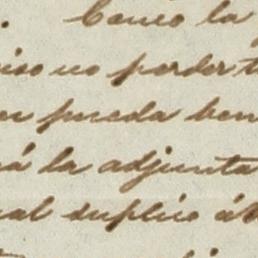 . Como la
iso no perder t
pueda ben
á la adjunta
al suplico á